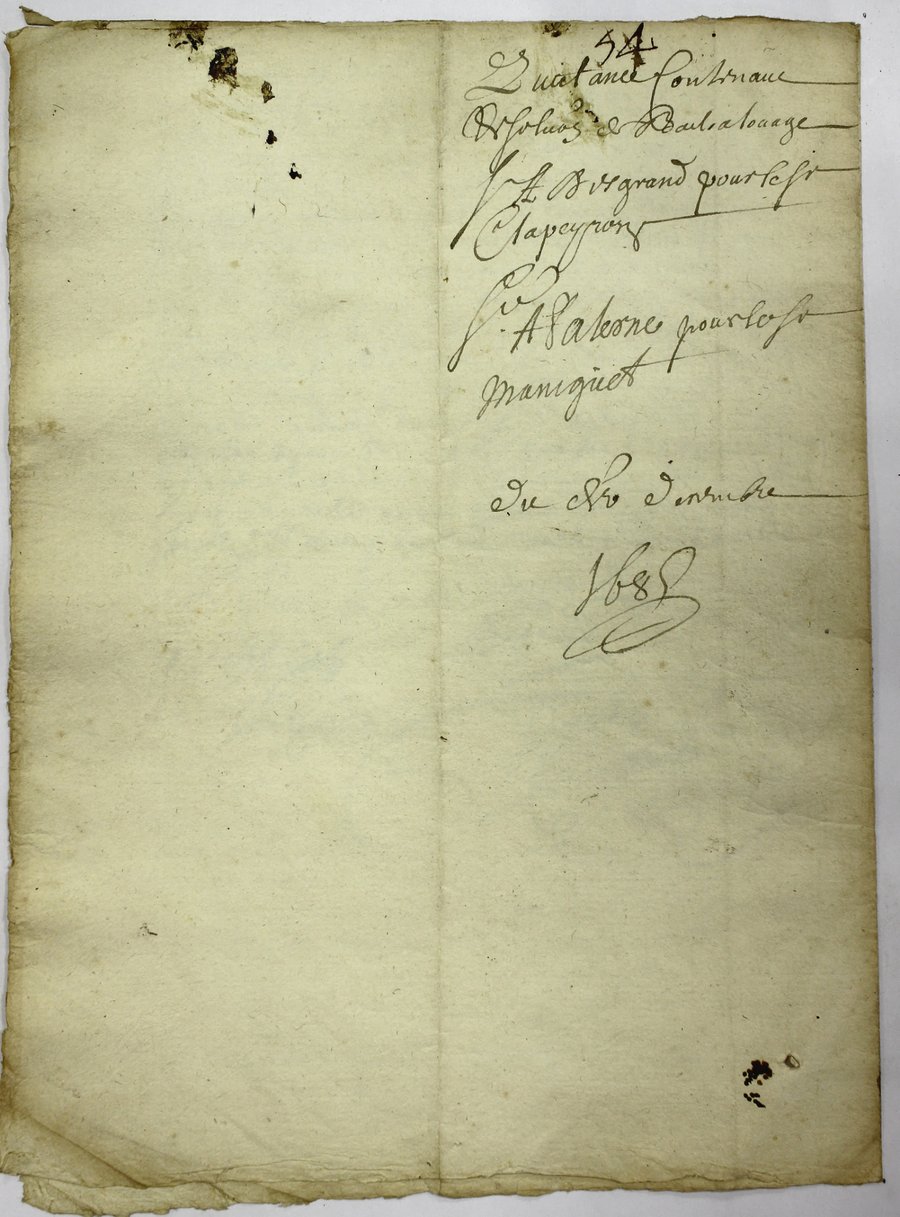 54
Quictance Contenant
Resoluõn de Bail a louage
Sr A Desgrand pour le Sr
Clapeyron
Sr A Palerne pour le Sr
Maniguet
du décembre
1685